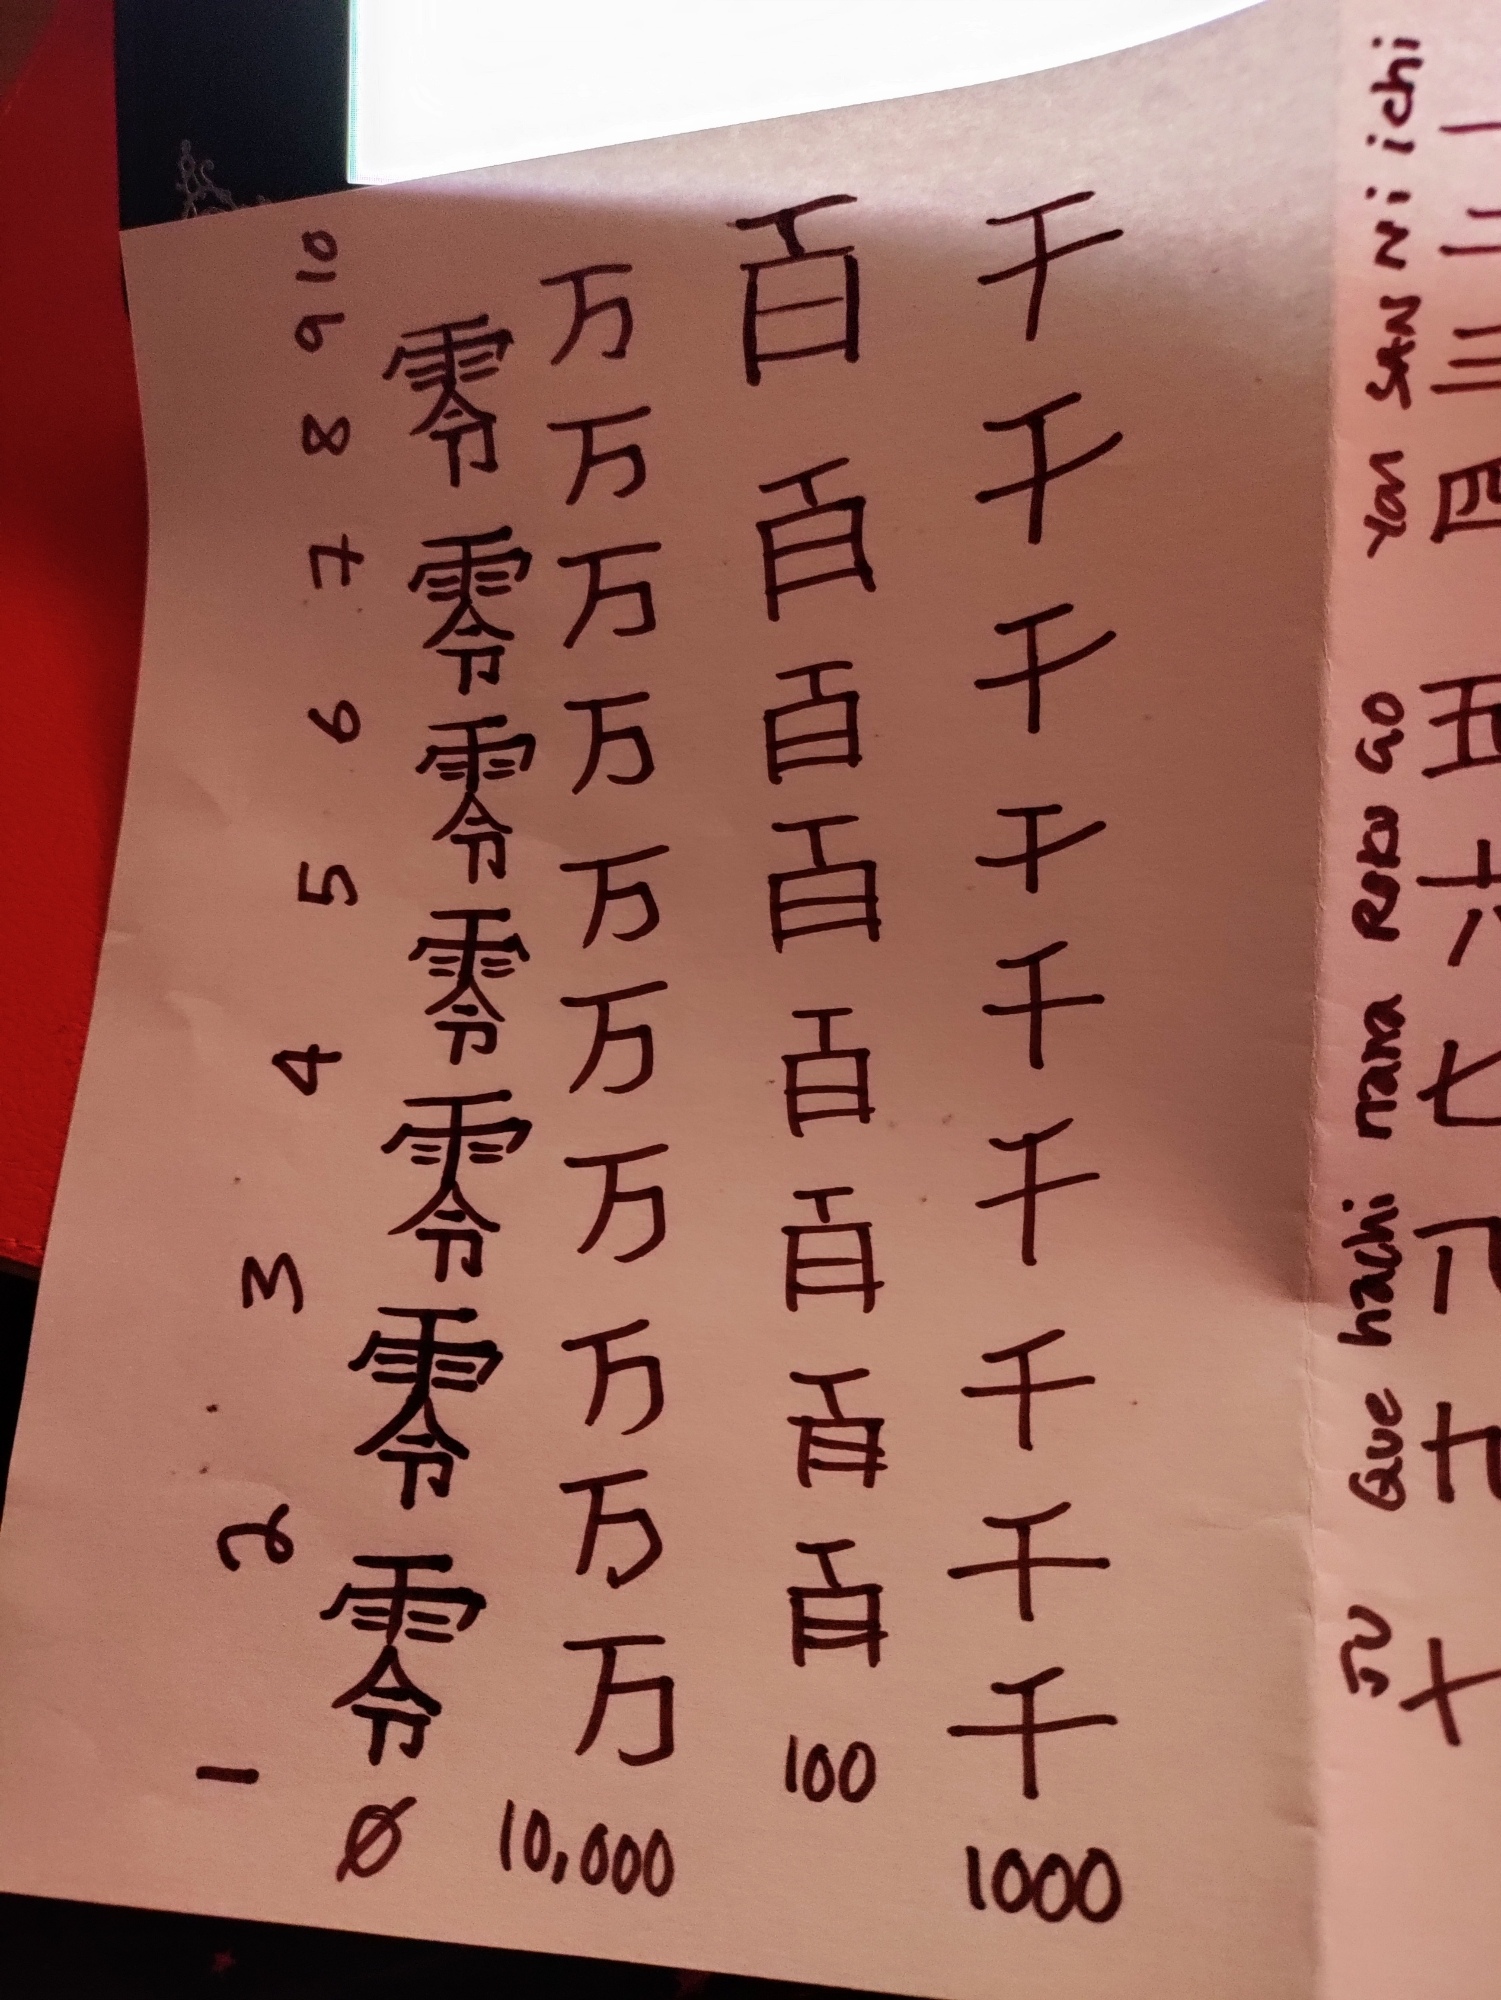 1 2 3 4 5 6 7 8 9 10
零零零零零零零
Ø
万万万万万万万万万万
10,000
百百百百百百百百
100
千千千千千千千千千
1000
ichi
Ni
SAN
Yon
GO
ROKU
nana
hachi
Que
JU
一
二
三
四
五
六
七
八
九
十